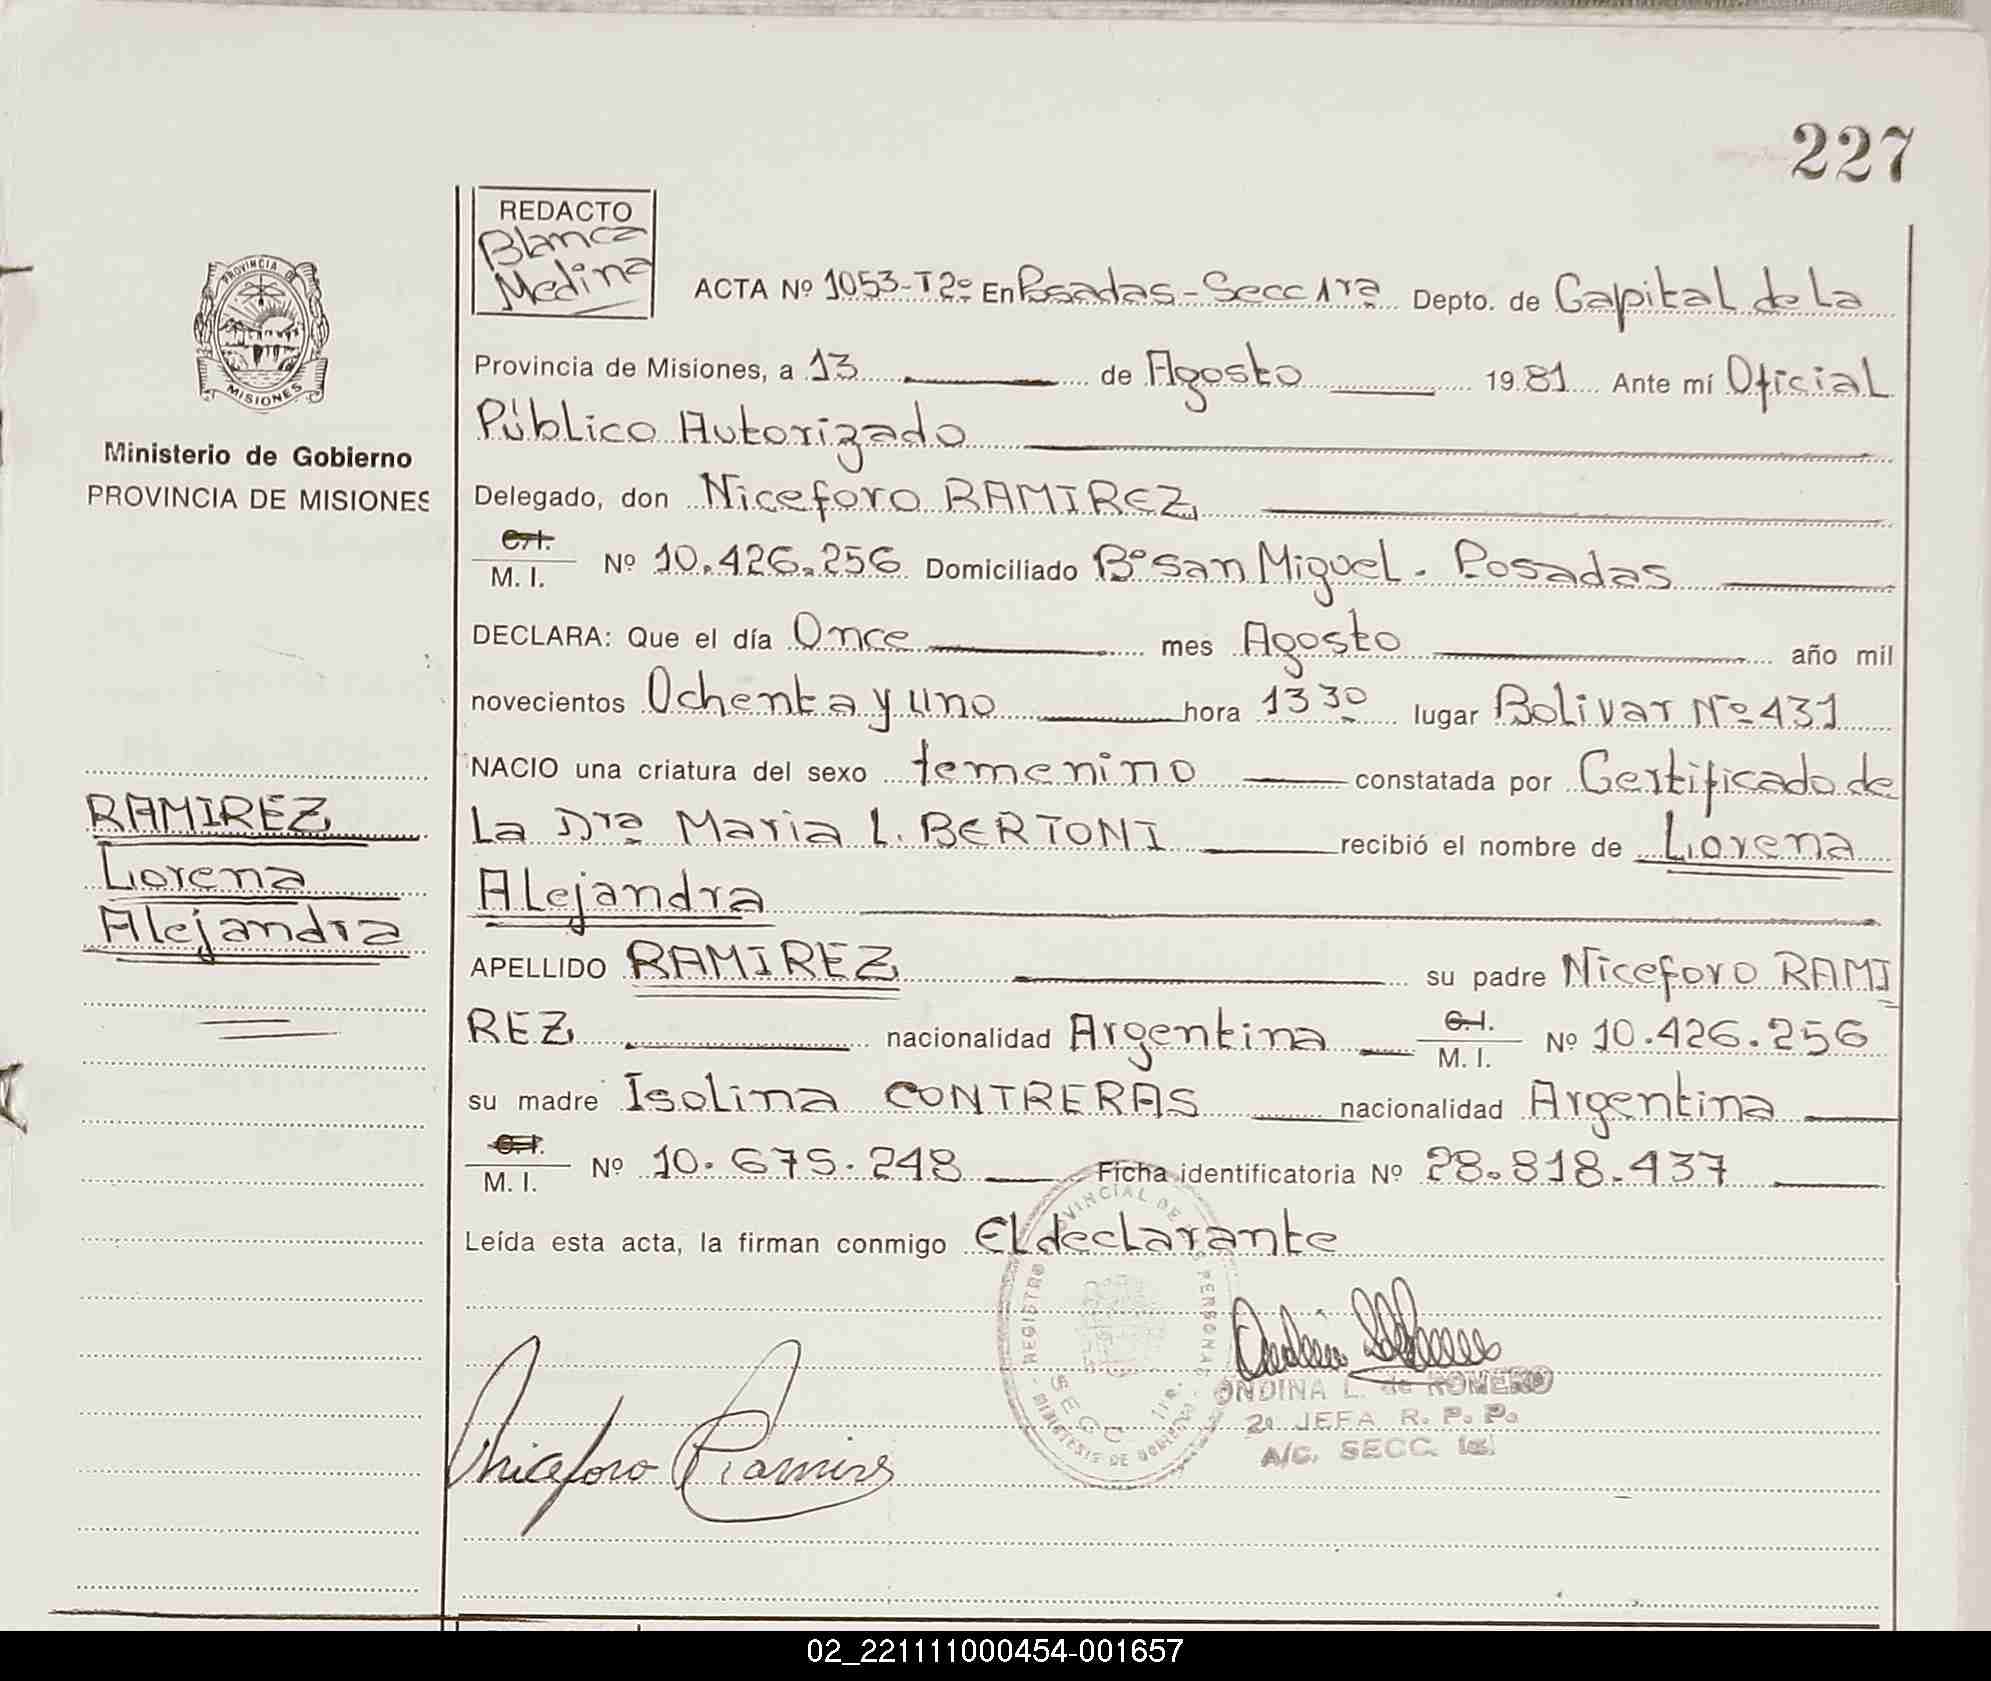 227
REDACTO
Blanca
Medina
PROVINCIA DE
MISIONES
Ministerio de Gobierno
PROVINCIA DE MISIONES
RAMIREZ
Lorena
Alejandra
ACTA Nº 1053-T2º En Posadas-Secc 1ra Depto. de Capital de La
Provincia de Misiones, a 13 de Agosto 1981 Ante mí Oficial
Público Autorizado
Delegado, don Niceforo RAMIREZ
C.I.
M. I. Nº 10.426.256 Domiciliado Bº San Miguel. Posadas
DECLARA: Que el día Once mes Agosto año mil
novecientos Ochenta y uno hora 13 30 lugar Bolivar Nº 431
NACIO una criatura del sexo femenino constatada por Certificado de
La Dra Maria L. BERTONI recibió el nombre de Lorena
Alejandra
APELLIDO RAMIREZ su padre Niceforo RAMI
REZ nacionalidad Argentina C.I. M. I. Nº 10.426.256
su madre Isolina CONTRERAS nacionalidad Argentina
C.I.
M. I. Nº 10.675.248 Ficha identificatoria Nº 28.818.437
Leída esta acta, la firman conmigo El declarante
REGISTRO PROVINCIAL DE PERSONAS
SECC 1ra.
Niceforo Ramires
ONDINA L. de ROMERO
2a JEFA R. P. P.
A/C. SECC. 1a.
02_221111000454-001657